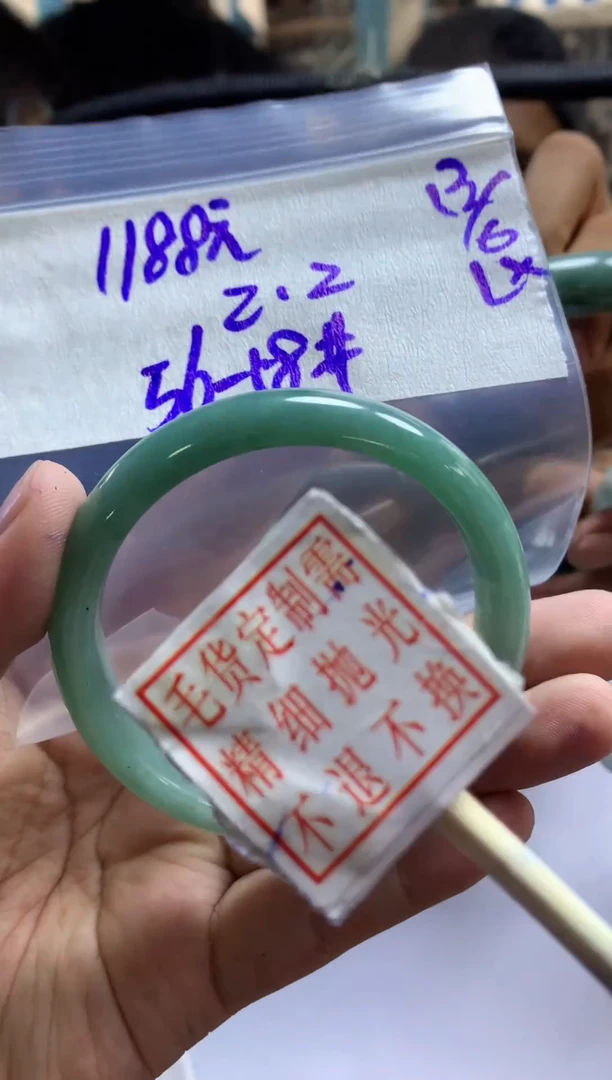 1188元
2.2
56-18#
13/6
Lx
毛货定制需
精细抛光
不退不换